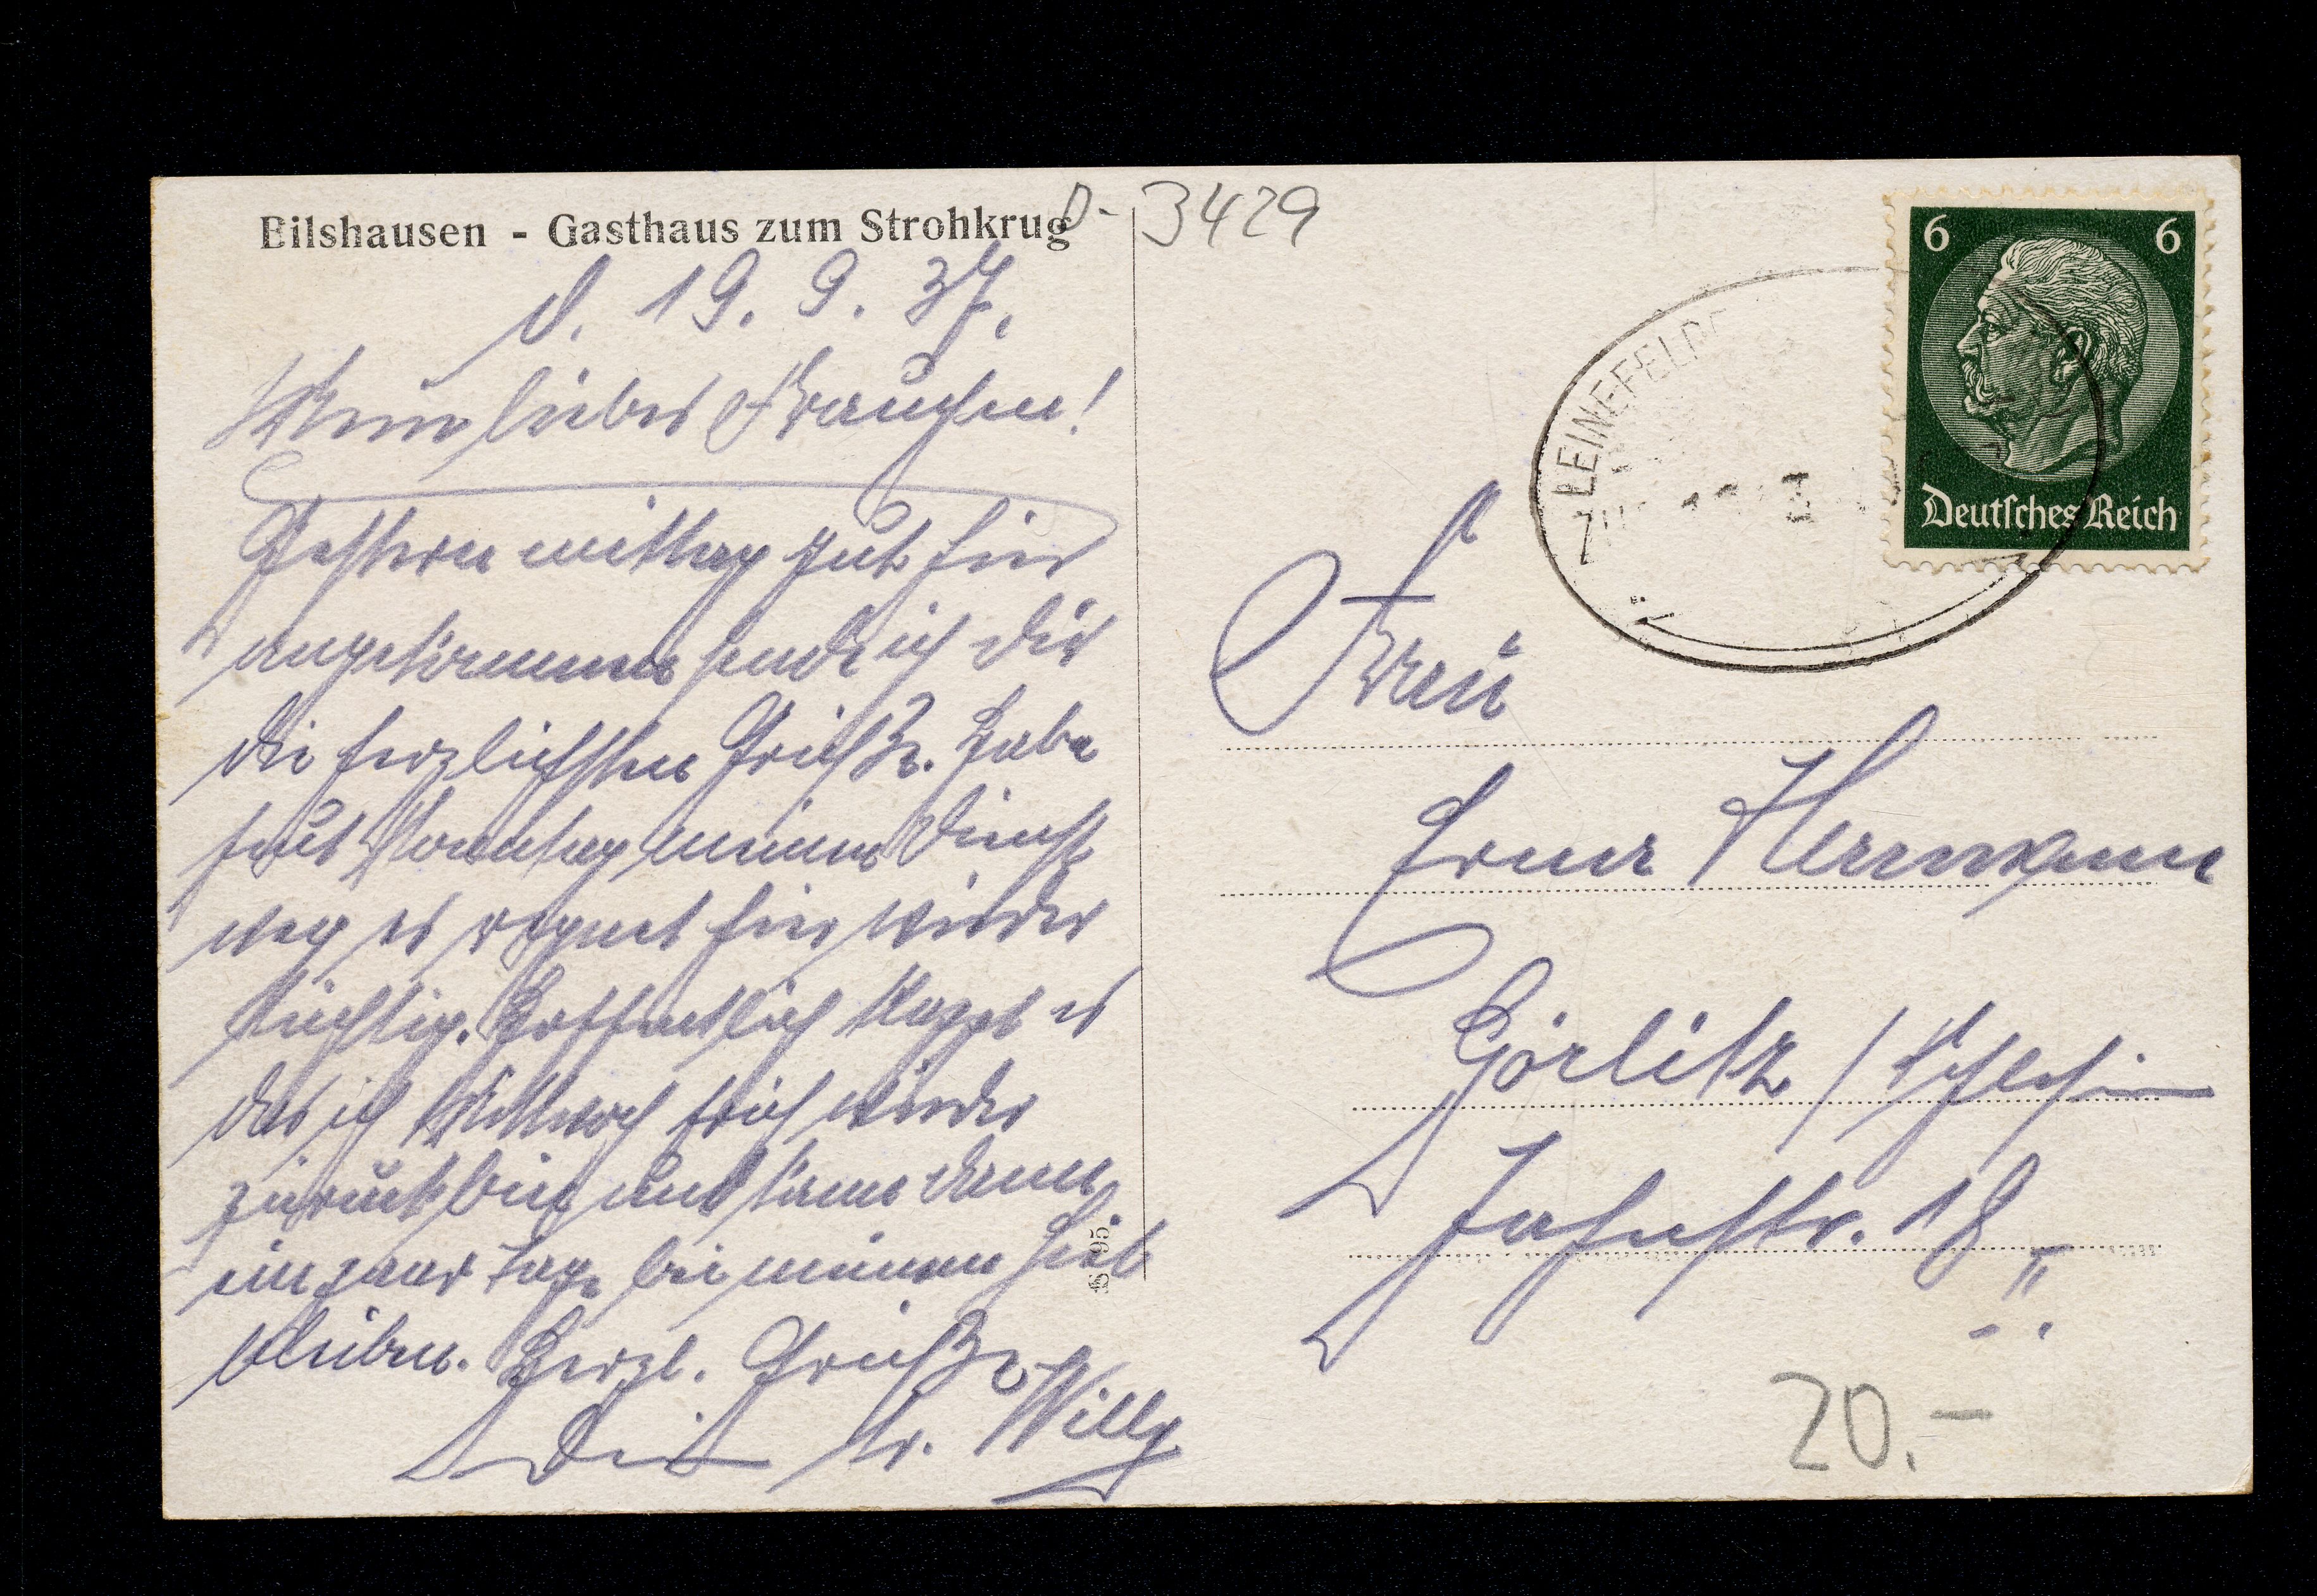 Bilshausen - Gasthaus zum Strohkrug
D-3429
d. 19. 9. 37.
Mein liebes Frauchen!
Gestern mittag gut hier
angekommen sende ich dir
die herzlichsten Grüße. Habe
heut Sonntag meinen Dienst
weg es regnet hier wieder
tüchtig. Hoffentlich klappt es
das ich Mittwoch früh wieder
zurück bin und kann dann
ein paar Tage bei meinem Lieb
bleiben. Herzl. Grüße
Dein tr. Willy
S 95.
6 6
Deutsches Reich
LEINEFELDE
ZUG
Frau
Erna Herrmann
Görlitz / Schlesien
Jahnstr. 18 II
20.-